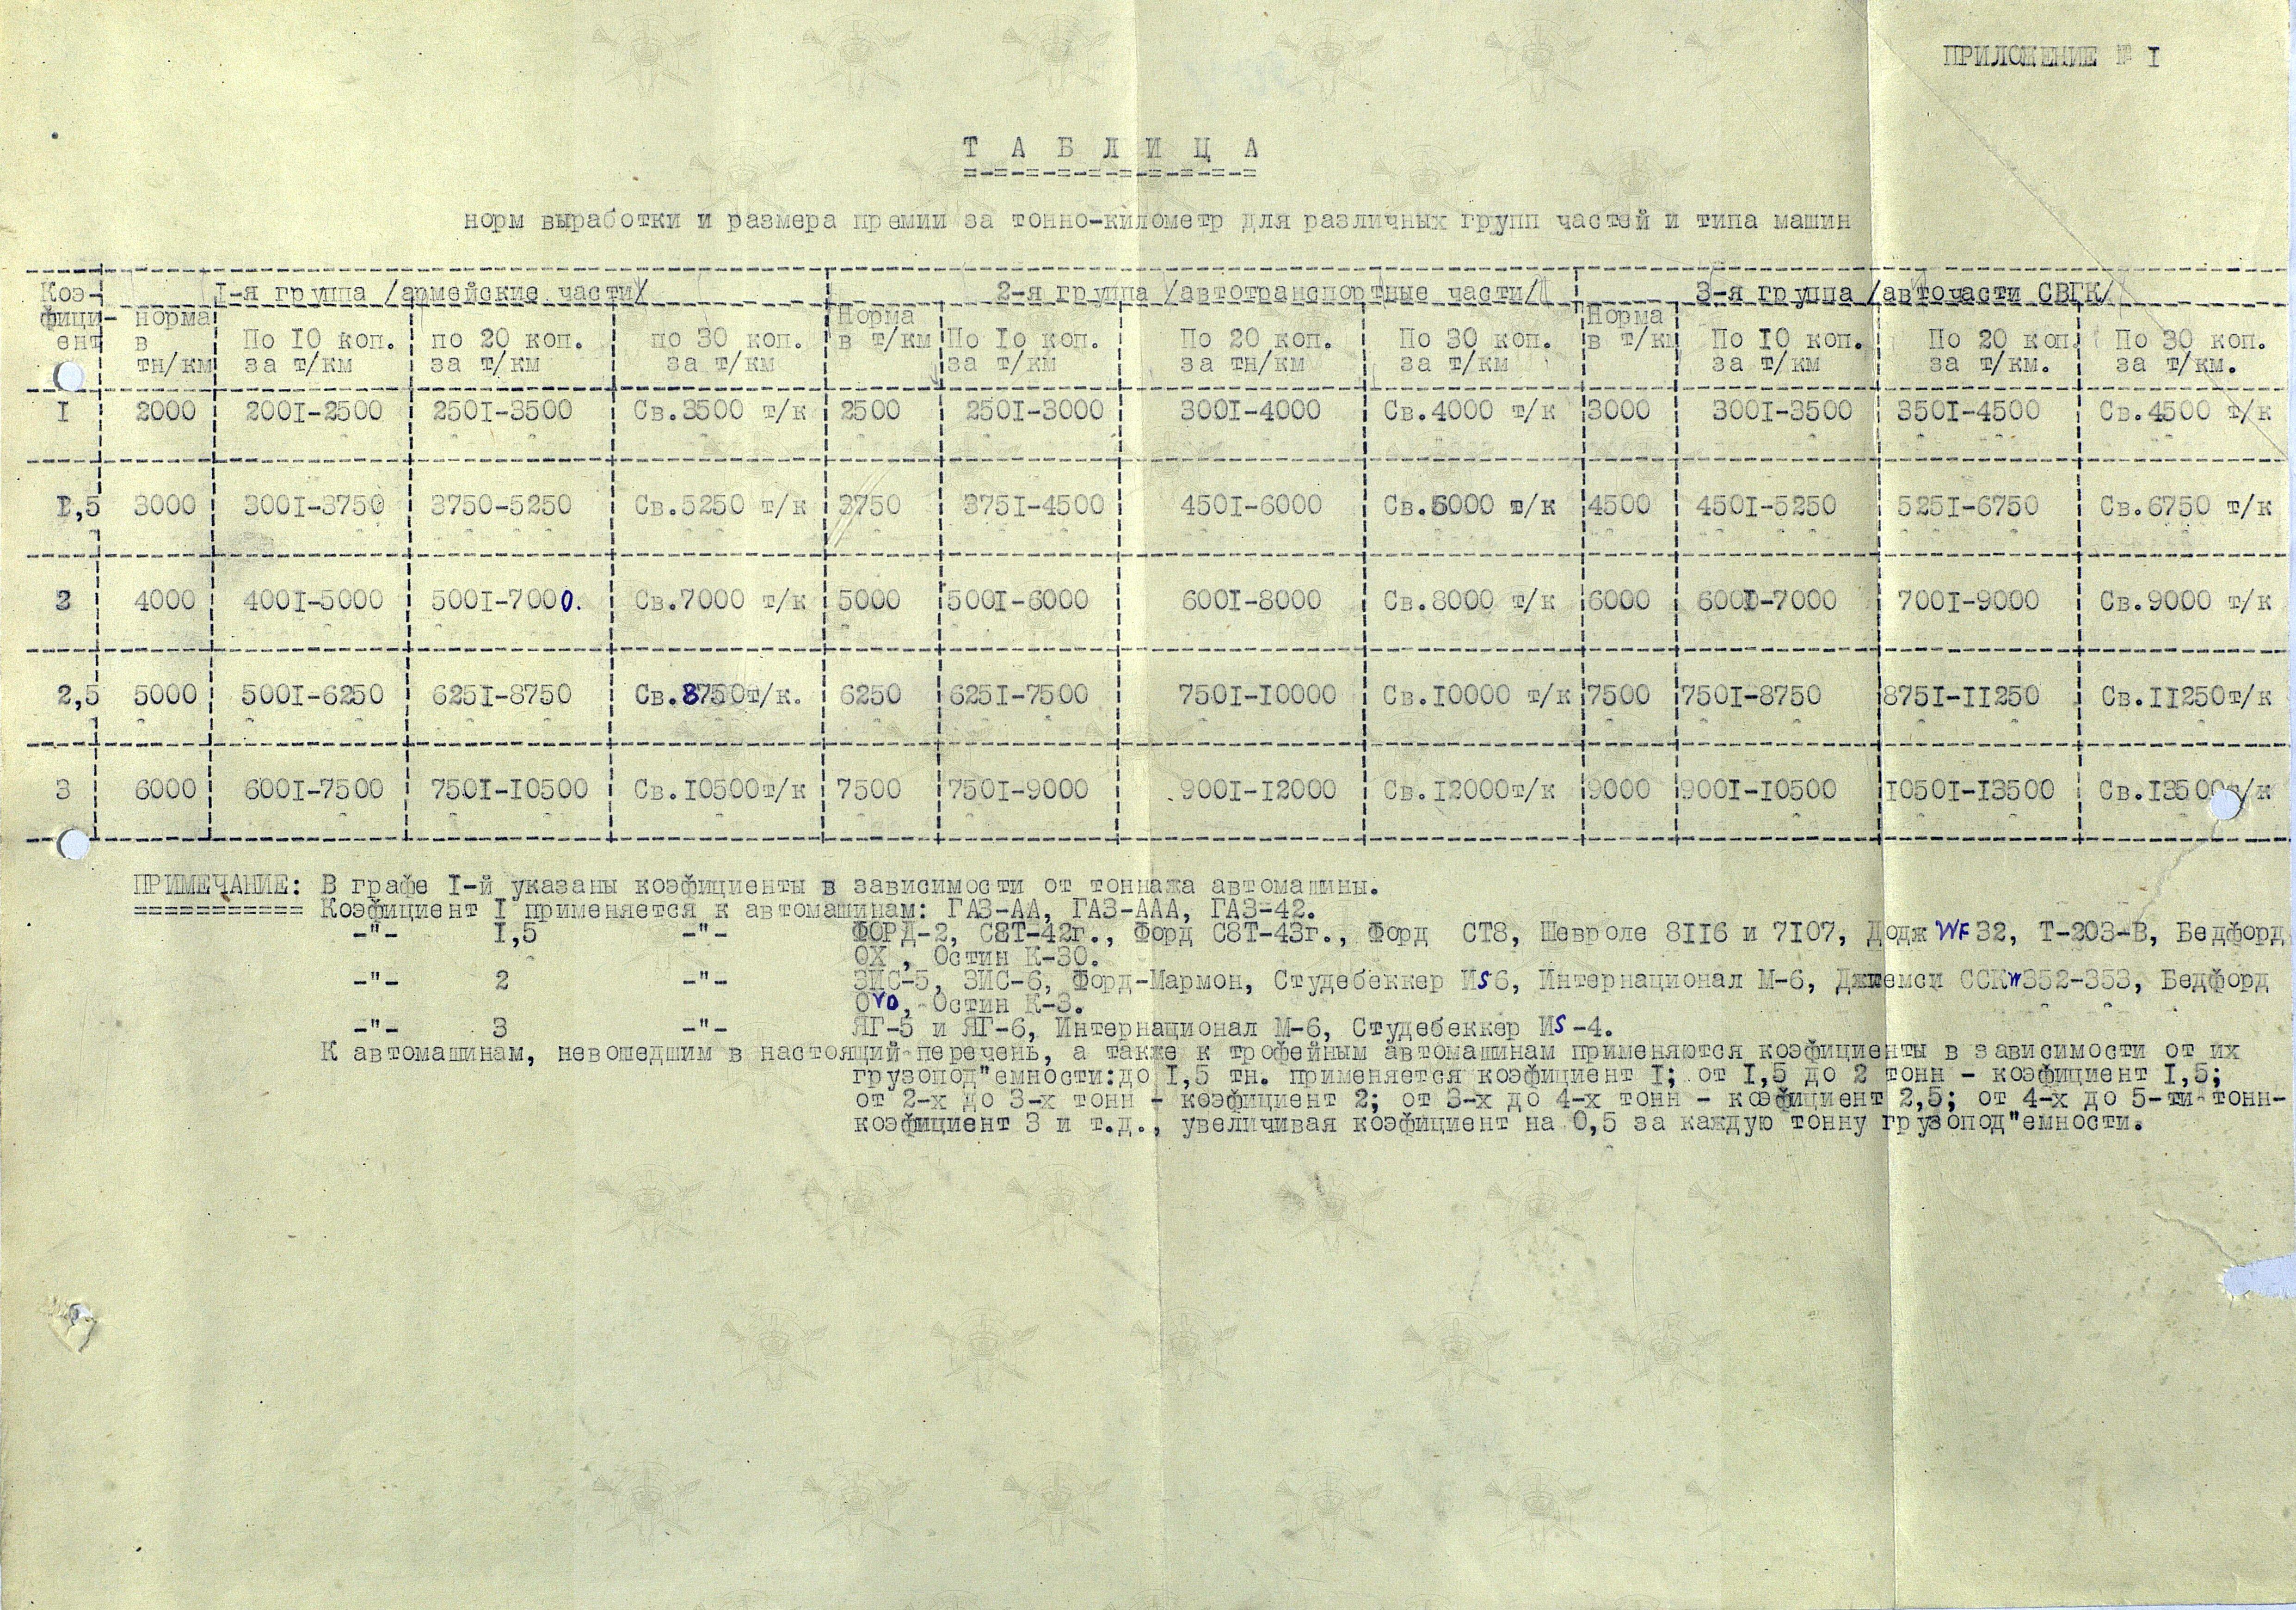 ПРИЛОЖЕНИЕ № I
Т А Б Л И Ц А
=-=-=-=-=-=-=-=-=-=
норм выработки и размера премии за тонно-километр для различных групп частей и типа машин
Коэ- I-я группа /армейские части/ 2-я группа /автотранспортные части/ 3-я группа /авточасти СВГК/
фици- норма Норма Норма
ент в По IO коп. по 20 коп. по 30 коп. в т/км По Iо коп. По 20 коп. По 30 коп. в т/км По IO коп. По 20 коп. По 30 коп.
тн/км за т/км за т/км за т/км за т/км за тн/км за т/км за т/км за т/км. за т/км.
I 2000 200I-2500 250I-3500 Св.3500 т/к 2500 250I-3000 300I-4000 Св.4000 т/к 3000 300I-3500 350I-4500 Св.4500 т/к
I,5 3000 300I-3750 3750-5250 Св.5250 т/к 3750 375I-4500 450I-6000 Св.6000 т/к 4500 450I-5250 525I-6750 Св.6750 т/к
2 4000 400I-5000 500I-7000. Св.7000 т/к 5000 500I-6000 600I-8000 Св.8000 т/к 6000 600I-7000 700I-9000 Св.9000 т/к
2,5 5000 500I-6250 625I-8750 Св.8750т/к. 6250 625I-7500 750I-I0000 Св.I0000 т/к 7500 750I-8750 875I-II250 Св.II250т/к
3 6000 600I-7500 750I-I0500 Св.I0500т/к 7500 750I-9000 900I-I2000 Св.I2000т/к 9000 900I-I0500 I050I-I3500 Св.I3500т/к
ПРИМЕЧАНИЕ: В графе I-й указаны коэфициенты в зависимости от тоннажа автомашины.
=========== Коэфициент I применяется к автомашинам: ГАЗ-АА, ГАЗ-ААА, ГАЗ-42.
-"- I,5 -"- ФОРД-2, С8Т-42г., Форд С8Т-43г., Форд СТ8, Шевроле 8II6 и 7I07, Додж WF 32, Т-203-В, Бедфорд
ОХ , Остин К-30.
-"- 2 -"- ЗИС-5, ЗИС-6, Форд-Мармон, Студебеккер ИS6, Интернационал М-6, Джиемси ССКW352-353, Бедфорд
Оvo, Остин К-3.
-"- 3 -"- ЯГ-5 и ЯГ-6, Интернационал М-6, Студебеккер ИS-4.
К автомашинам, невошедшим в настоящий перечень, а также к трофейным автомашинам применяются коэфициенты в зависимости от их
грузопод"емности:до I,5 тн. применяется коэфициент I; от I,5 до 2 тонн - коэфициент I,5;
от 2-х до 3-х тонн - коэфициент 2; от 3-х до 4-х тонн - коэфициент 2,5; от 4-х до 5-ти тонн-
коэфициент 3 и т.д., увеличивая коэфициент на 0,5 за каждую тонну грузопод"емности.